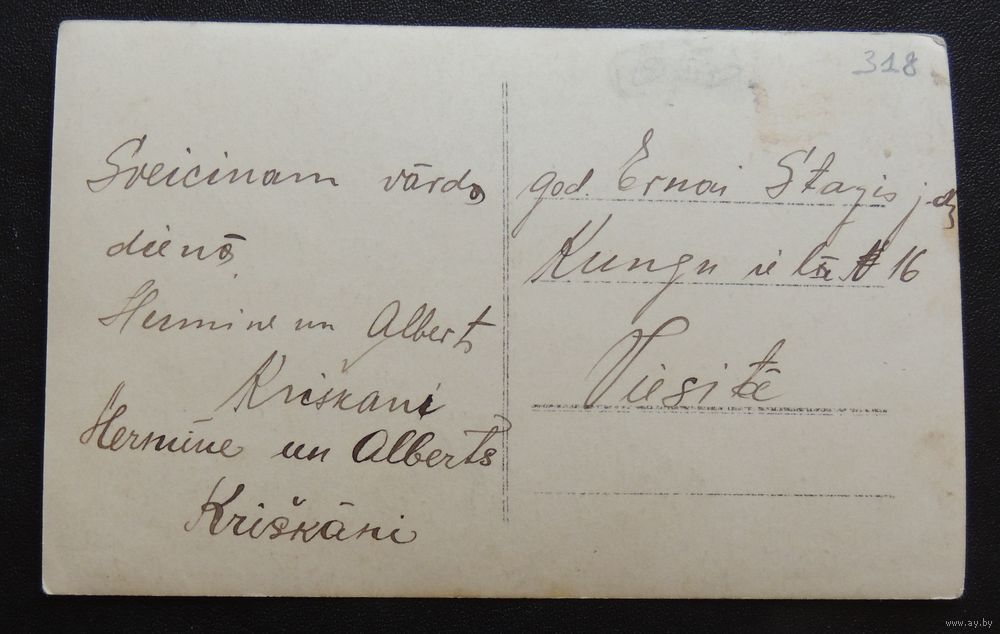 318
Sveicinam vārda
dienā
Hermine un Albert
Kriškani
Hermīne un Alberts
Kriškāni
god. Ernai Stagis j-dz
Kungu ielā № 16
Viesitē
www.ay.by